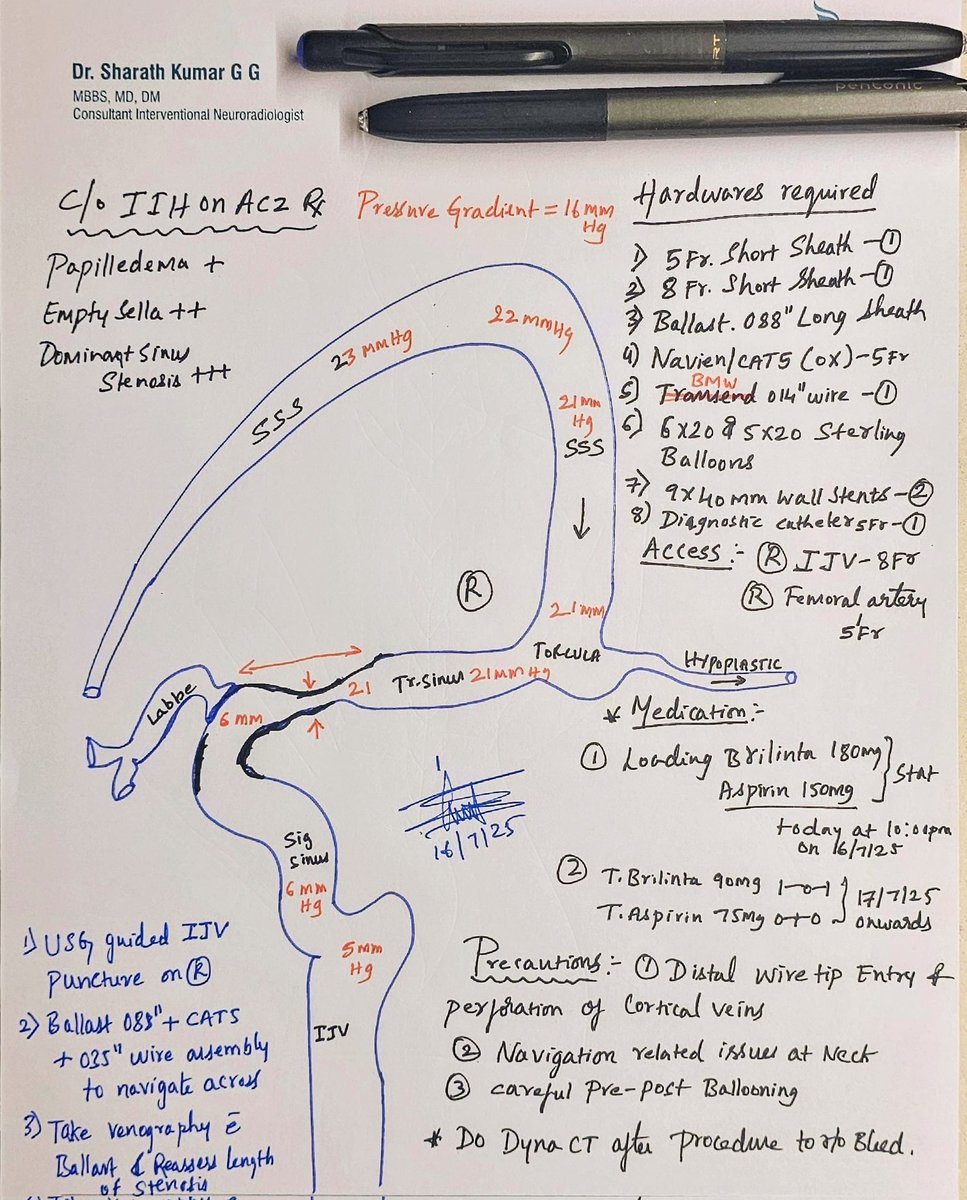 Dr. Sharath Kumar G G
MBBS, MD, DM
Consultant Interventional Neuroradiologist
RT
penconic
C/o IIH on Acz Rx
Papilledema +
Empty Sella ++
Dominant Sinus
Stenosis +++
Pressure Gradient = 16 mm
Hg
Hardwares required
1) 5 Fr. Short Sheath - ①
2) 8 Fr. Short Sheath - ①
3) Ballast. 088" Long Sheath
4) Navien/CAT5 (OX) - 5Fr
BMW
5) Transend 014" wire - ①
6) 6x20 & 5x20 Sterling
Balloons
7) 9x40 mm Wall Stents - ②
8) Diagnostic catheter 5Fr - ①
Access :- Ⓡ IJV - 8Fr
Ⓡ Femoral artery
5Fr
SSS
23 mmHg
22 mmHg
21 mm
Hg
SSS
Ⓡ
21 mm
TORCULA
HYPOPLASTIC
Tr. Sinus 21 mm Hg
21
Labbe
6 mm
Sig
Sinus
6 mm
Hg
5 mm
Hg
IJV
16/7/25
* Medication :-
① Loading Brilinta 180mg
Aspirin 150mg
Stat
today at 10:00pm
on 16/7/25
② T. Brilinta 90mg 1-0-1
T. Aspirin 75mg 0+0
17/7/25
onwards
Precautions :- ① Distal wire tip Entry &
perforation of Cortical veins
② Navigation related issues at Neck
③ careful Pre-post Ballooning
* Do Dyna CT after procedure to r/o Bleed.
1) USG guided IJV
Puncture on Ⓡ
2) Ballast 088" + CAT5
+ 035" wire assembly
to navigate across
3) Take venography c̄
Ballast & Reassess length
of Stenosis